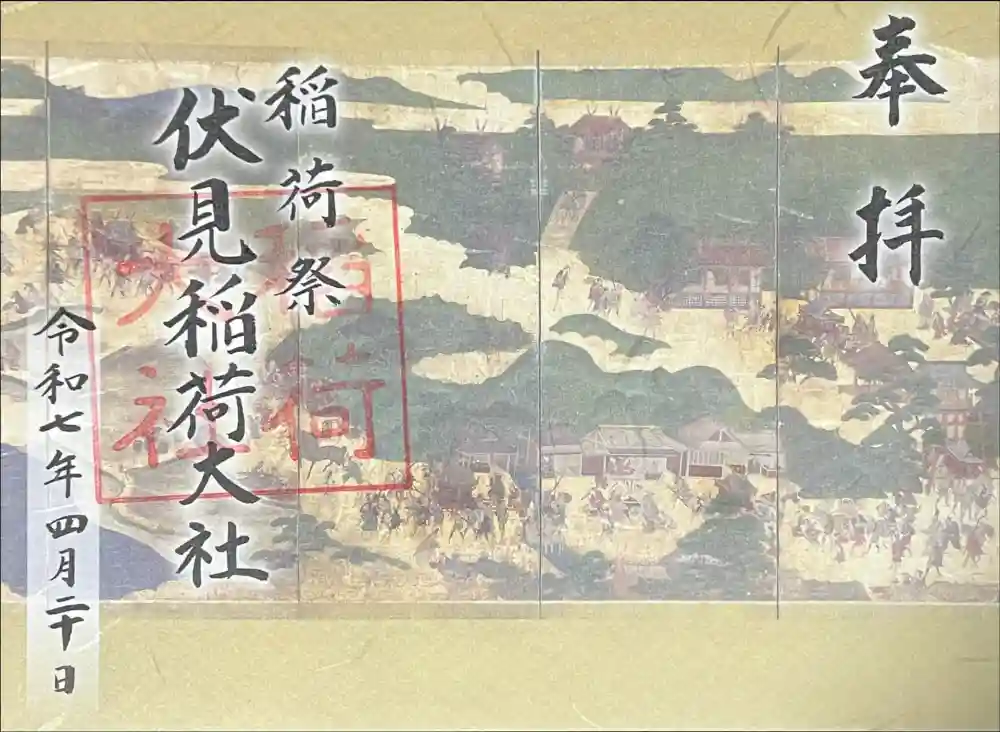 奉拝
稲荷祭
伏見稲荷大社
稲荷大社
令和七年四月二十日